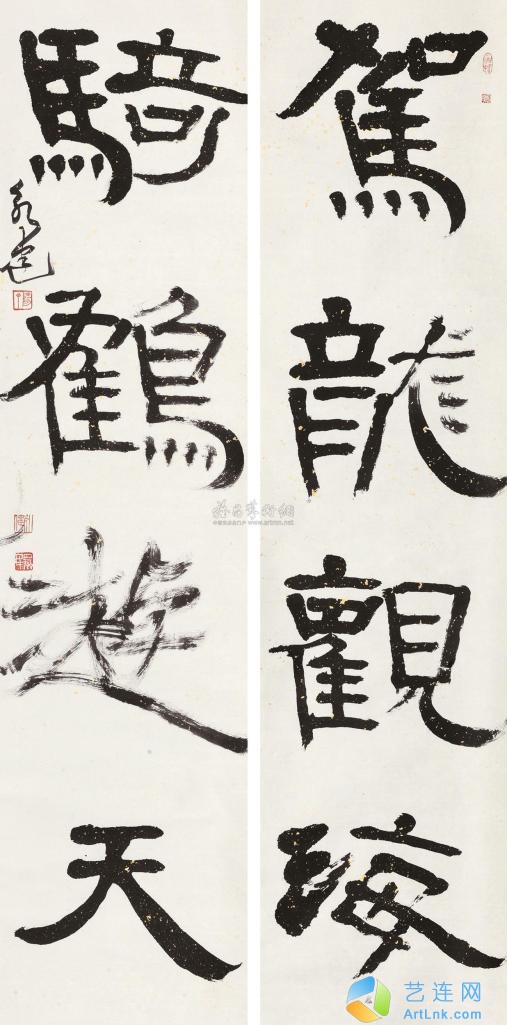 駕龍觀海
騎鶴遊天
艺连网
ArtLnk.com